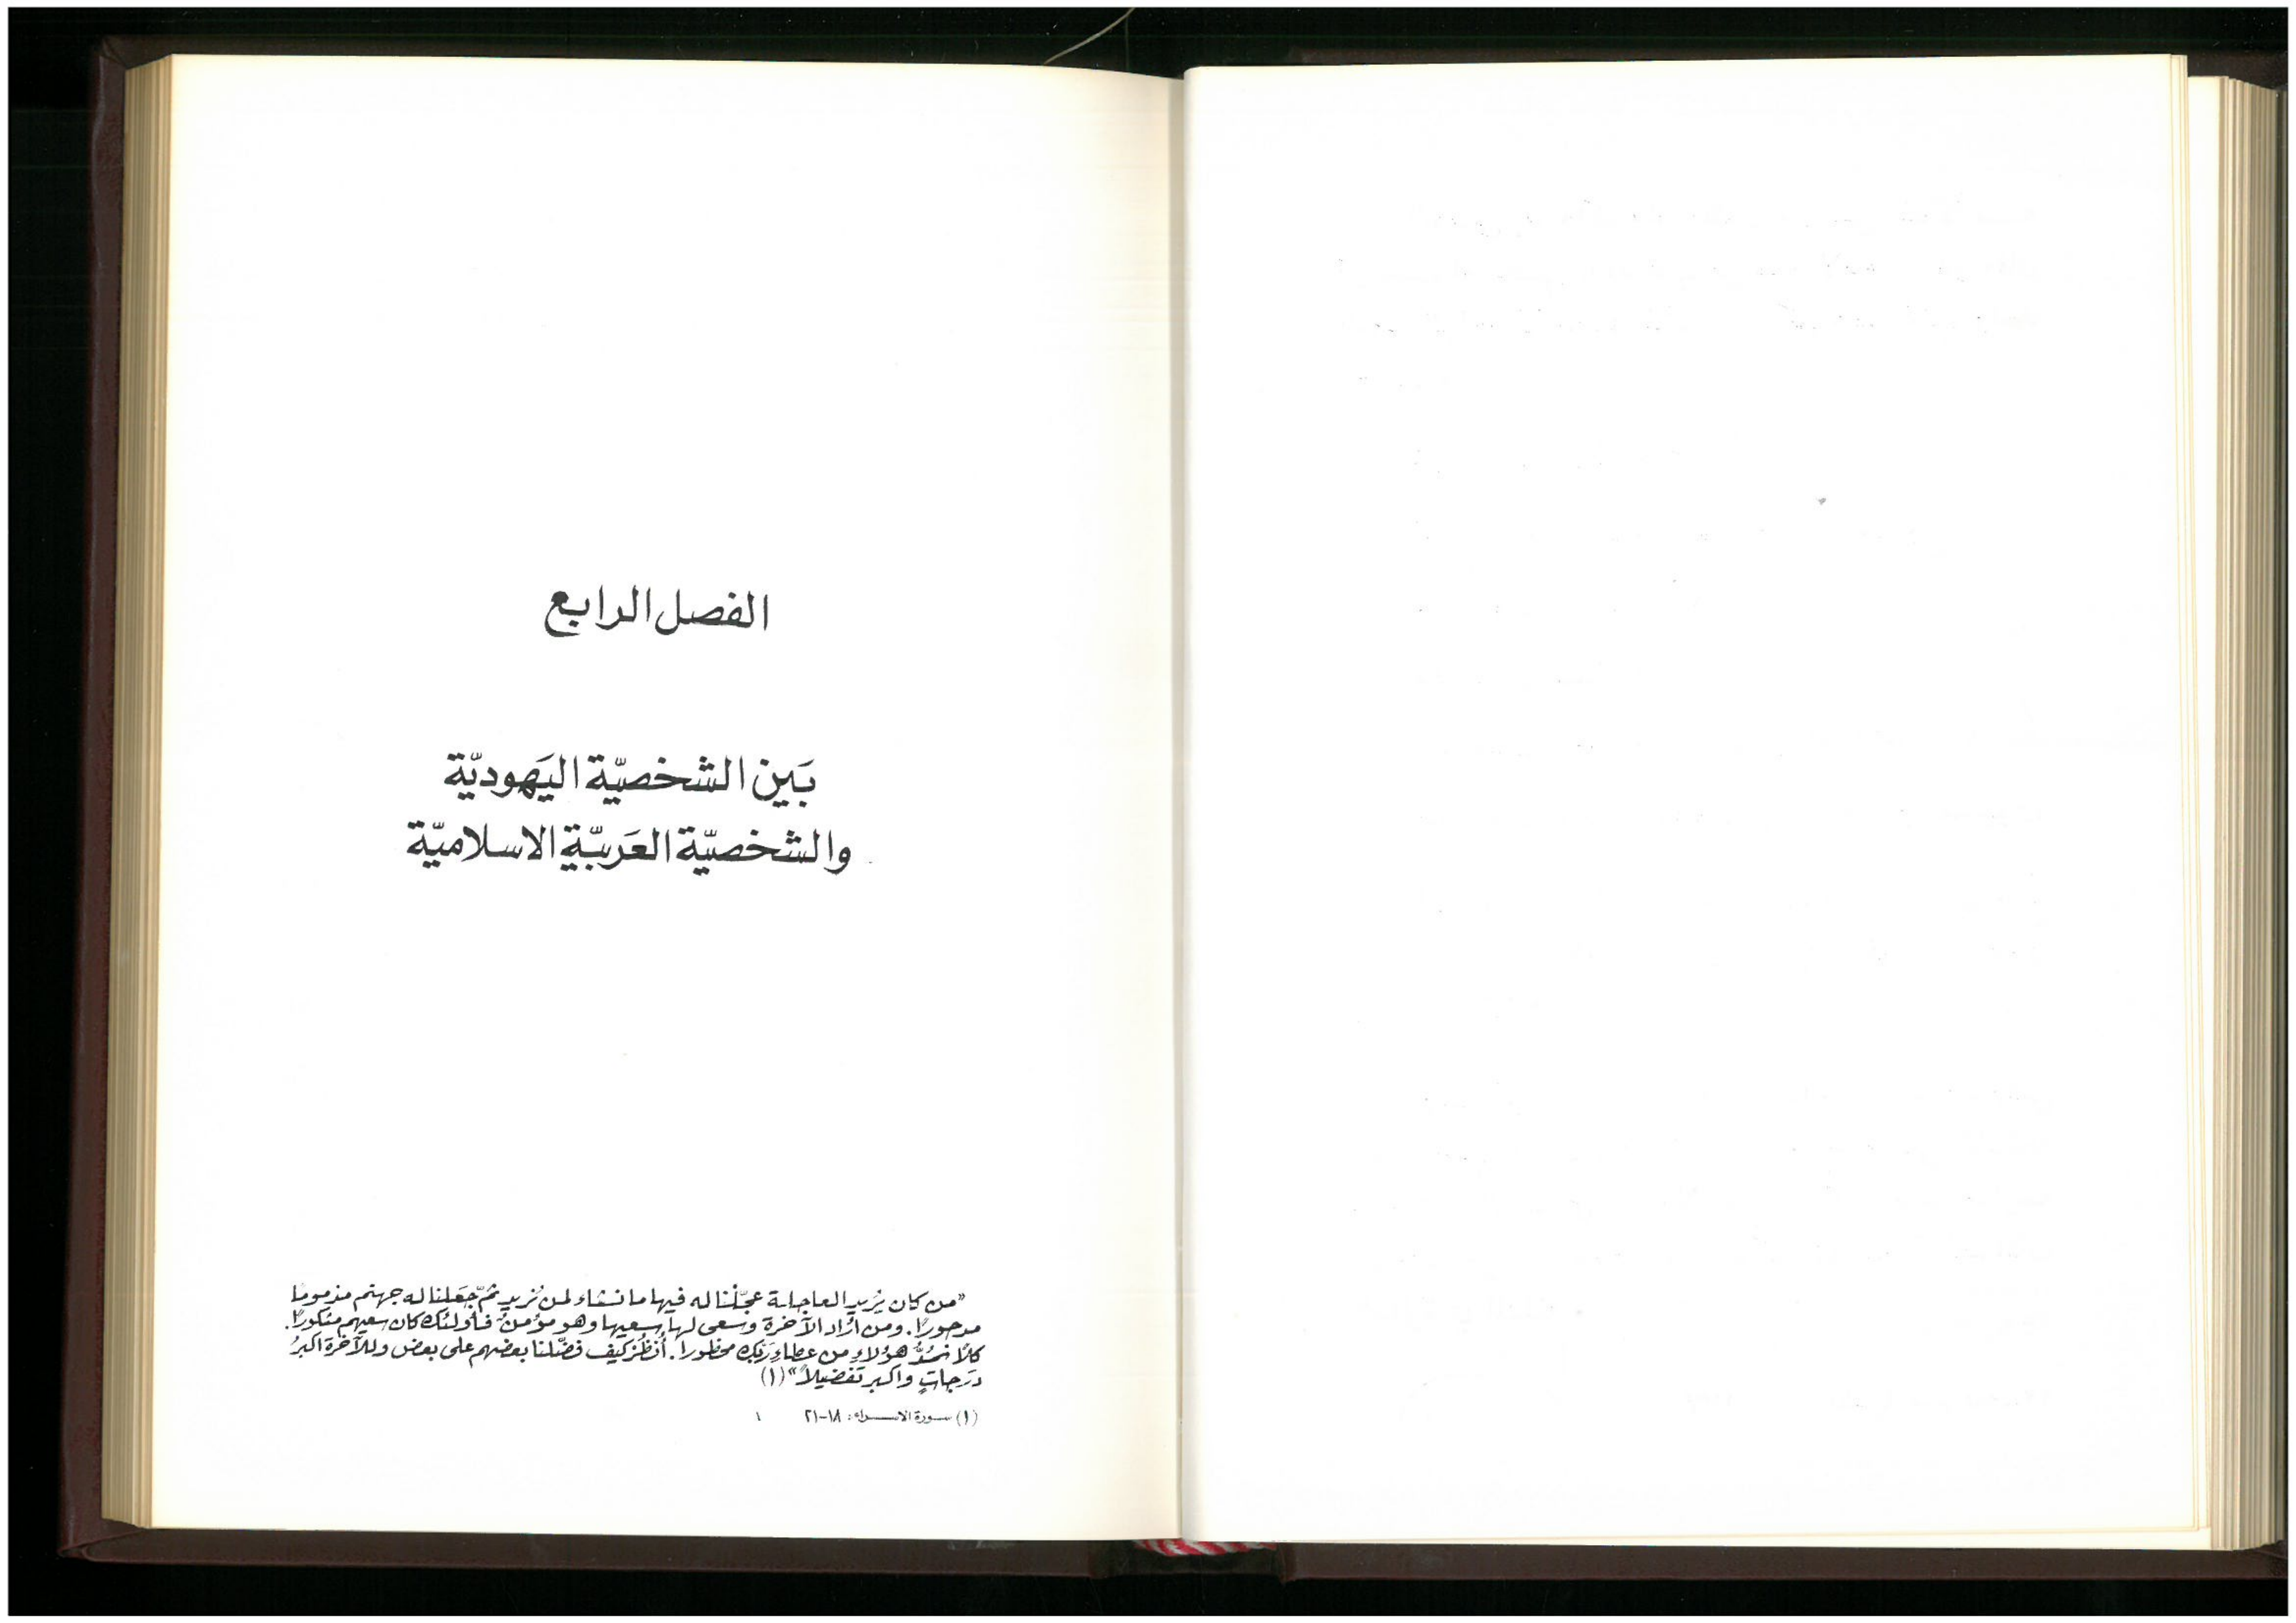 الفصل الرابع
بَين الشخصيّة اليَهوديّة
والشخصيّة العَربيّة الاسلاميّة
"من كان يُريد العاجلة عجّلْنا له فيها ما نشاء لمن نُريد ثمّ جَعَلنا له جهنم مذموما
مدحورًا. ومن أراد الآخرة وسعى لها سعيها وهو مؤمن فأولئك كان سعيهم مشكورًا.
كلاً نمُدُّ هؤلاءِ من عطاءِ رَبِّك محظورا. أُنظُر كيف فضّلنا بعضهم على بعض وللآخرة اكبرُ
درَجاتٍ واكبر تفضيلاً" (١)
(١) سورة الاسراء: ١٨-٢١ ١